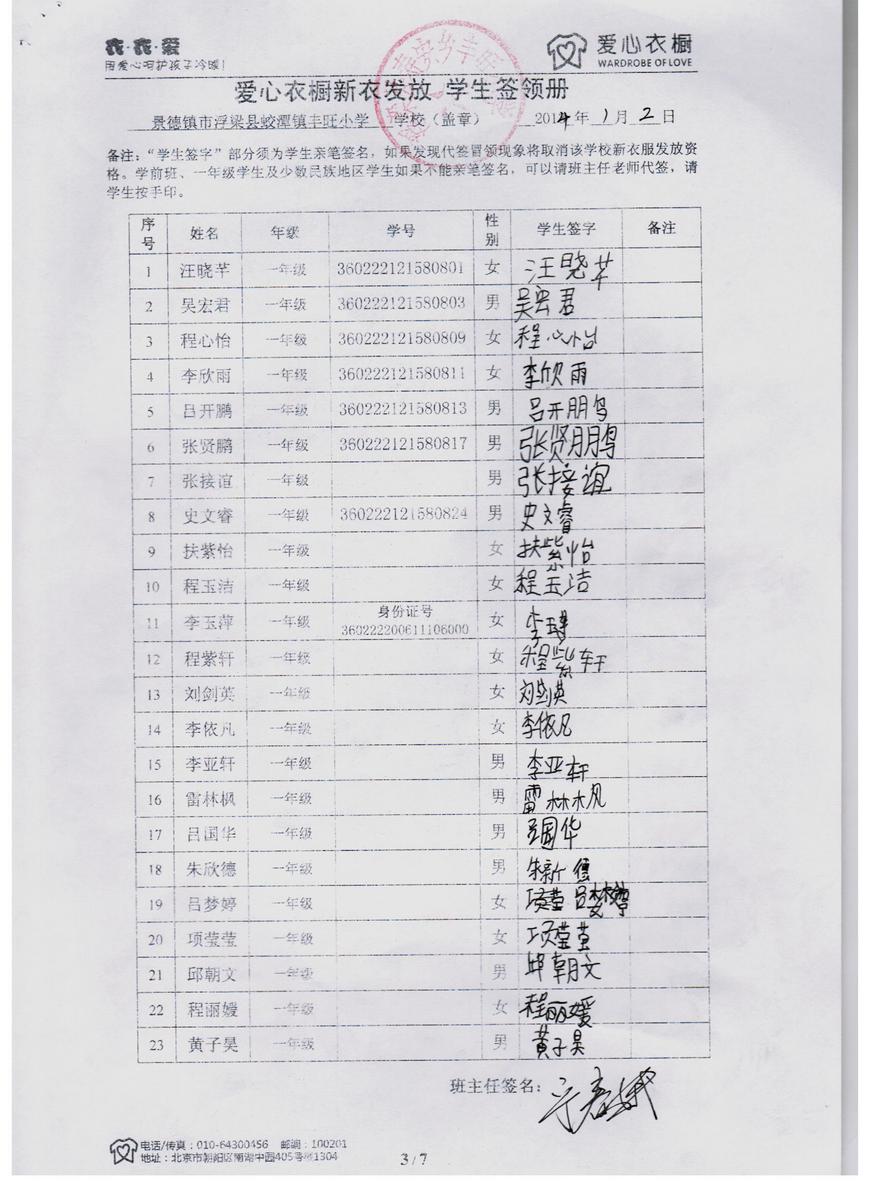 衣·衣·爱
用爱心呵护孩子冷暖!
爱心衣橱
WARDROBE OF LOVE
爱心衣橱新衣发放 学生签领册
景德镇市浮梁县蛟潭镇丰旺小学 学校（盖章） 2014年 1 月 2 日
备注：“学生签字”部分须为学生亲笔签名，如果发现代签冒领现象将取消该学校新衣服发放资
格。学前班、一年级学生及少数民族地区学生如果不能亲笔签名，可以请班主任老师代签，请
学生按手印。
序号 姓名 年级 学号 性别 学生签字 备注
1 汪晓芊 一年级 360222121580801 女 汪晓芊
2 吴宏君 一年级 360222121580803 男 吴宏君
3 程心怡 一年级 360222121580809 女 程心怡
4 李欣雨 一年级 360222121580811 女 李欣雨
5 吕开鹏 一年级 360222121580813 男 吕开鹏
6 张贤鹏 一年级 360222121580817 男 张贤鹏
7 张接谊 一年级 男 张接谊
8 史文睿 一年级 360222121580824 男 史文睿
9 扶紫怡 一年级 女 扶紫怡
10 程玉洁 一年级 女 程玉洁
11 李玉萍 一年级 身份证号 360222200611106000 女 李
12 程紫轩 一年级 女 程紫轩
13 刘剑英 一年级 女 刘剑英
14 李依凡 一年级 女 李依凡
15 李亚轩 一年级 男 李亚轩
16 雷林枫 一年级 男 雷林枫
17 吕国华 一年级 男 国华
18 朱欣德 一年级 男 朱新德
19 吕梦婷 一年级 女 项莹 吕梦婷
20 项莹莹 一年级 女 项莹莹
21 邱朝文 一年级 男 邱朝文
22 程丽嫒 一年级 女 程丽嫒
23 黄子昊 一年级 男 黄子昊
班主任签名：
电话/传真：010-64300456 邮编：100201
地址：北京市朝阳区南湖中园405号楼1304
3 / 7